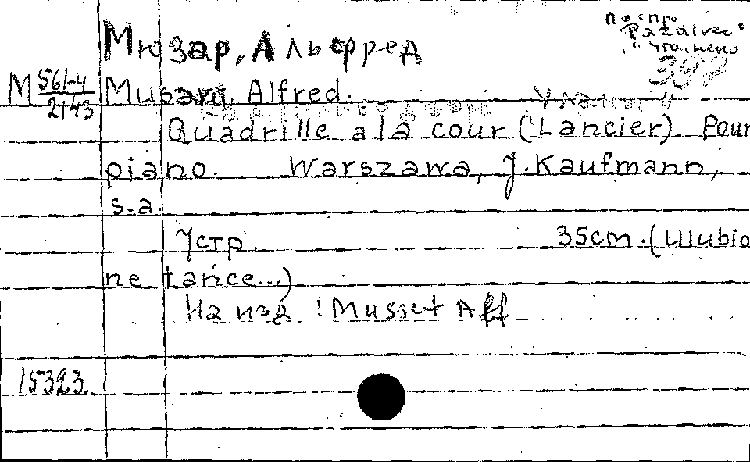 Мюзар, Альфред
М 561-4
2143
Musard, Alfred.
Quadrille a la cour (Lancier) Pour
piano. Warszawa, J. Kaufmann,
s.a.
7стр. 35cm. (Ulubio
ne tańce...)
На изд: Musset Alf
15323